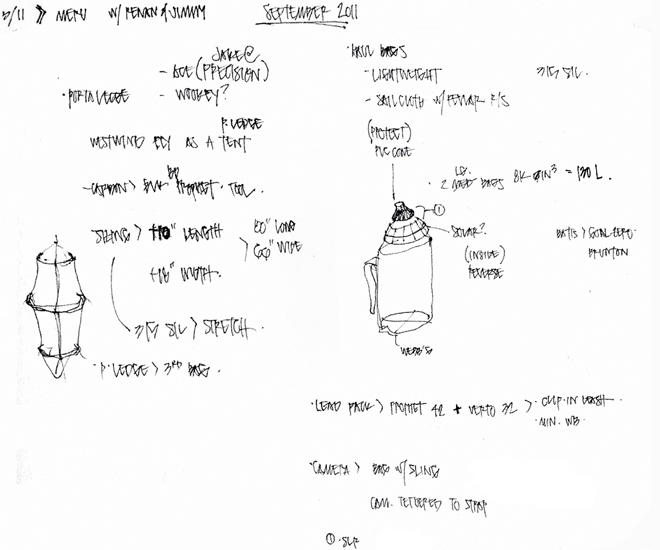 5/11 » MERU W/ RENAN & JIMMY
SEPTEMBER 2011
JAKE @
- ACE (PRECISION)
· PORTALEDGE - WOOKEY?
P. LEDGE
WESTWIND FLY AS A TENT
SLING > 110" LENGTH
+16" WIDTH.
60" LONG
60" WIDE
315 SIL > STRETCH.
· P. LEDGE > 3RD BAG.
· HAUL BAGS
- LIGHTWEIGHT 315 SIL.
- SAILCLOTH W/ P/S
(PROTECT)
PVC CONE
LG.
· 2 HAUL BAGS 8K IN³ = 130 L.
①
SOLAR?
(INSIDE)
REVERSE
BATTS > GOAL ZERO
BRUNTON
WEBB'G
· LEAD PACK > PROPHET 42 + VERTO 32 > · CLIP-IN LEASH.
· MIN. WB.
· CAMERA > BAG W/ SLING
CAM. TETHERED TO STRAP
① · SLR